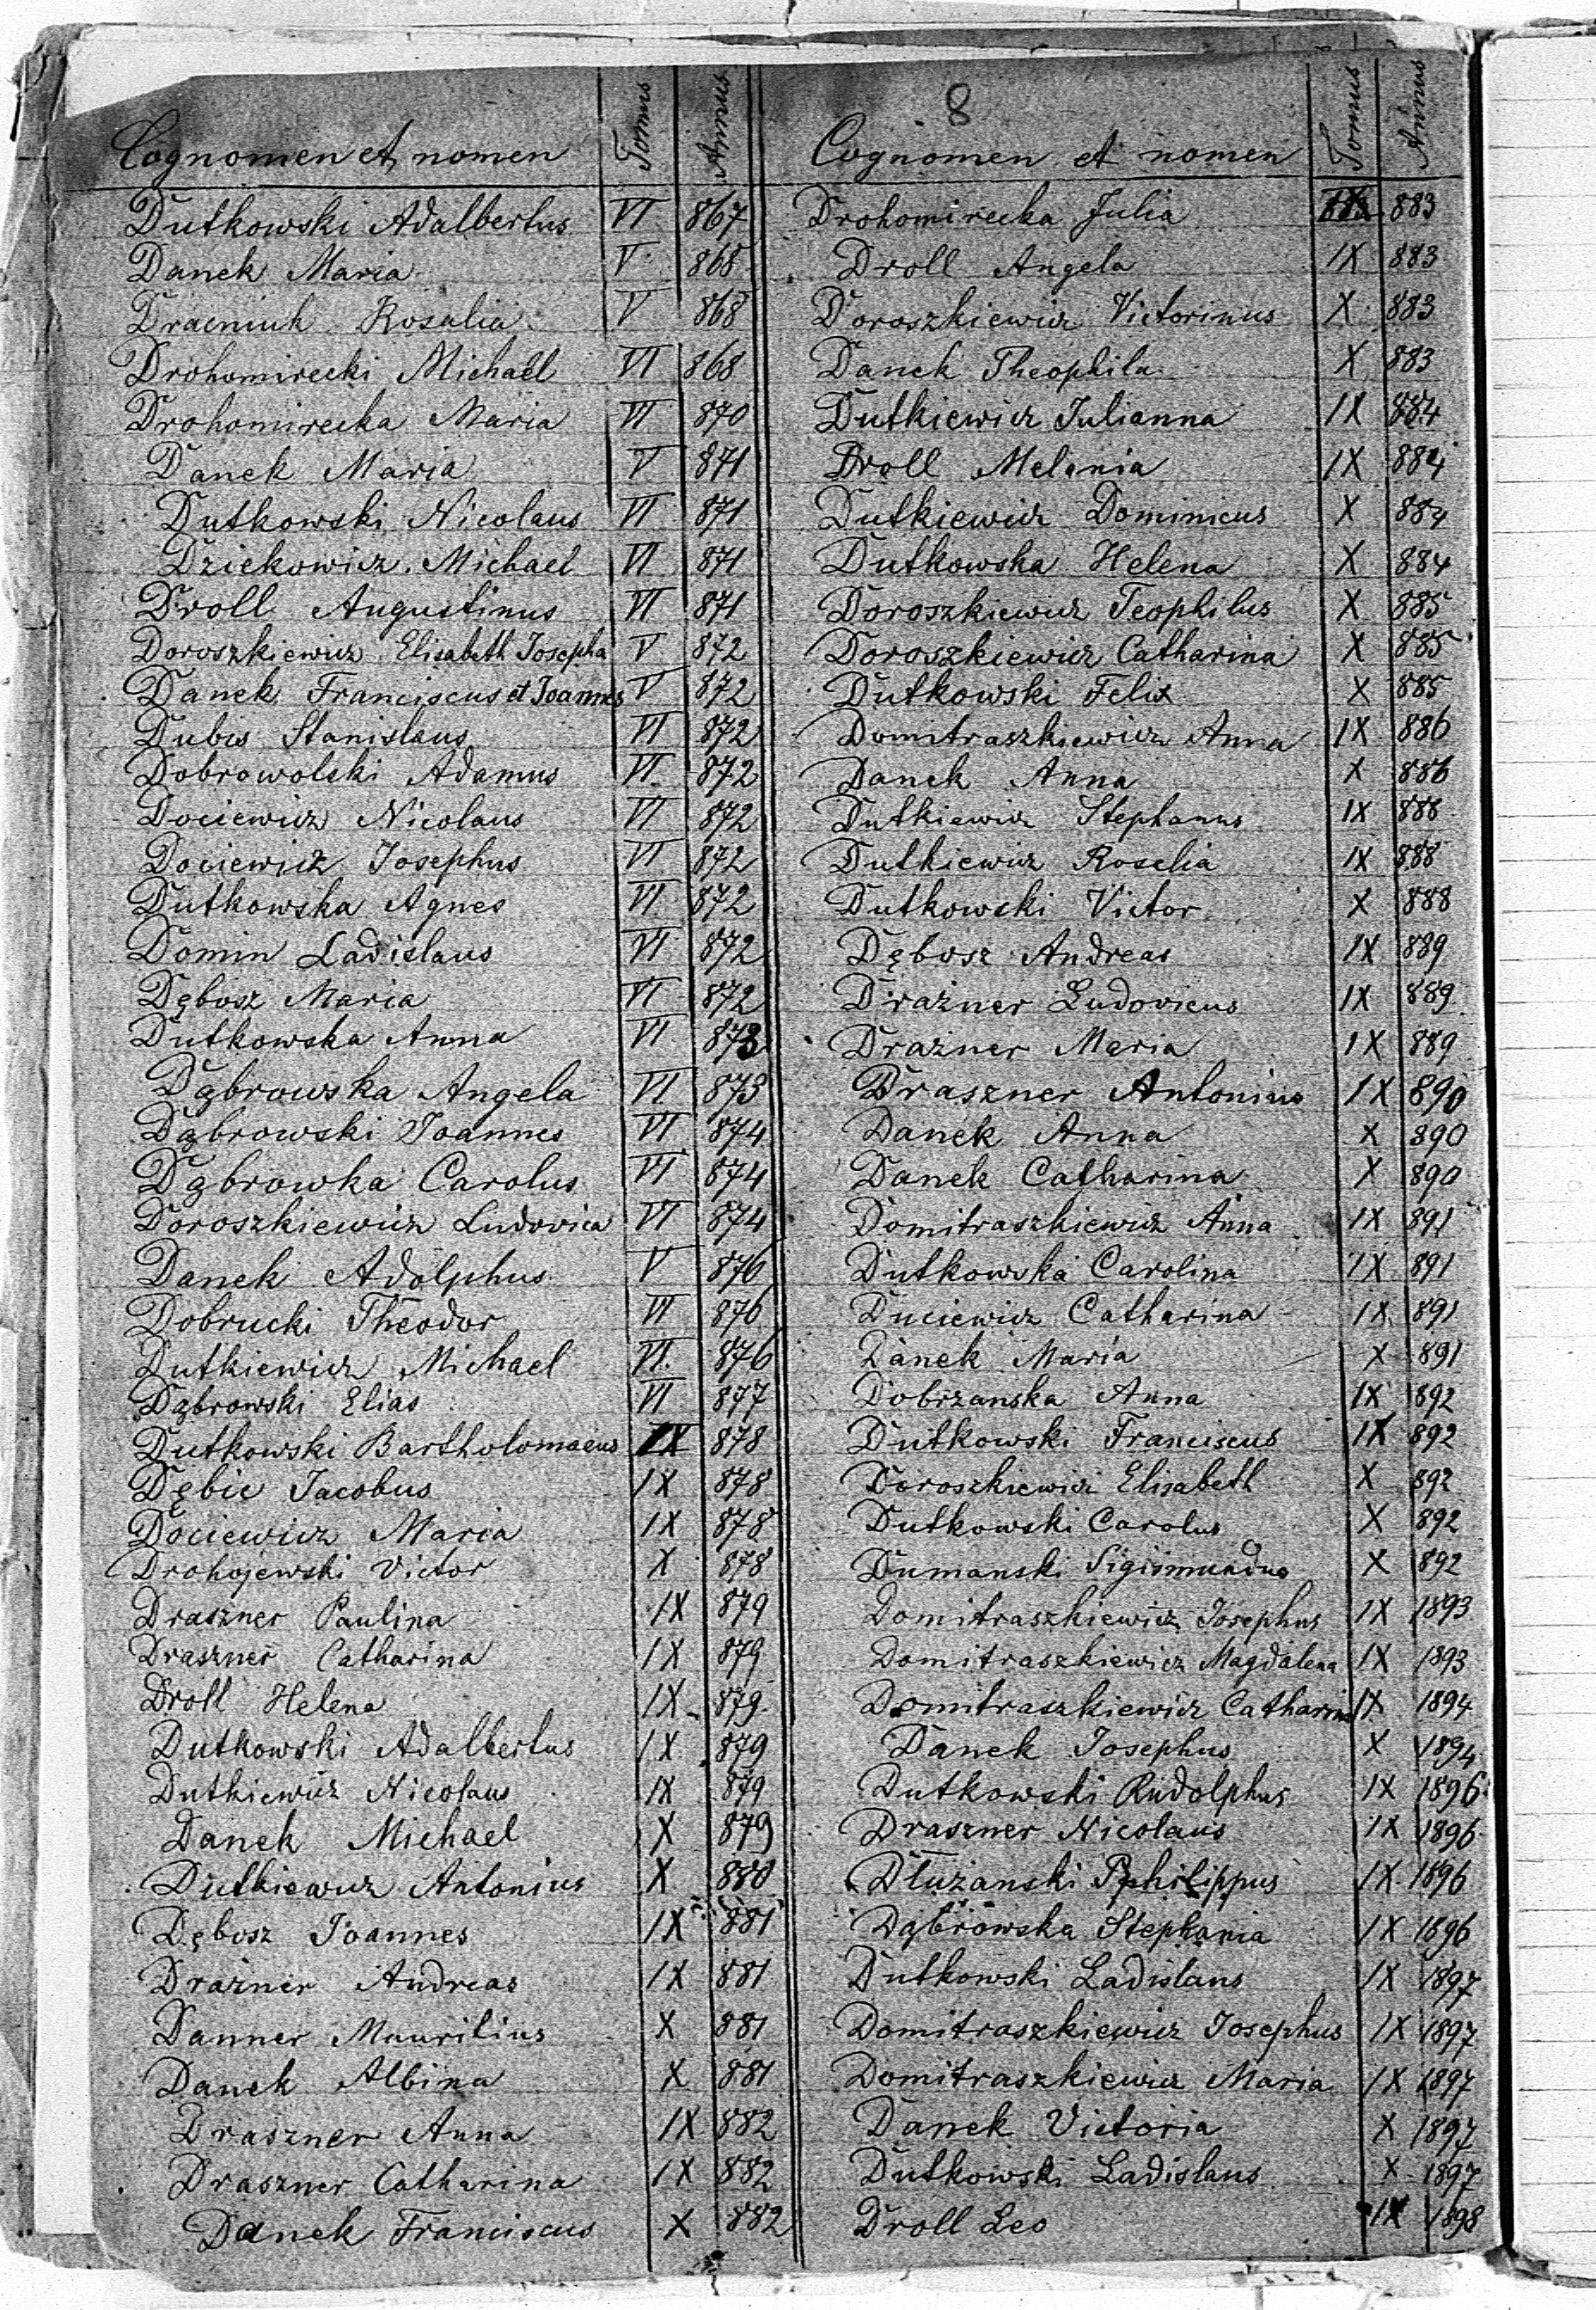 8
Cognomen et nomen Tomus Annus
Dutkowski Adalbertus VI 867
Danek Maria V 868
Dracniuk Rosalia V 868
Drohomirecki Michael VI 868
Drohomirecka Maria VI 870
Danek Maria V 871
Dutkowski Nicolaus VI 871
Dziekowicz Michael VI 871
Droll Augustinus VI 871
Doroszkiewicz Elisabeth Josepha V 872
Danek Franciscus et Joannes V 872
Dubis Stanislaus VI 872
Dobrowolski Adamus VI 872
Dociewicz Nicolaus VI 872
Dociewicz Josephus VI 872
Dutkowska Agnes VI 872
Domin Ladislaus VI 872
Dębosz Maria VI 872
Dutkowska Anna VI 873
Dąbrowska Angela VI 873
Dąbrowski Joannes VI 874
Dąbrowka Carolus VI 874
Doroszkiewicz Ludovica VI 874
Danek Adolphus V 876
Dobrucki Theodor VI 876
Dutkiewicz Michael VI. 876
Dąbrowski Elias VI 877
Dutkowski Bartholomaeus IX 878
Dębic Jacobus IX 878
Dociewicz Maria IX 878
Drohojewski Victor X 878
Draszner Paulina IX 879
Draszner Catharina IX 879
Droll Helena IX 879
Dutkowski Adalbertus IX 879
Dutkiewicz Nicolaus IX 879
Danek Michael X 879
Dutkiewicz Antonius X 880
Dębosz Joannes IX 881
Drażner Andreas IX 881
Danner Mauritius X 881
Danek Albina X 881
Draszner Anna IX 882
Draszner Catharina IX 882
Danek Franciscus X 882
Cognomen et nomen Tomus Annus
Drohomirecka Julia 883
Droll Angela IX 883
Doroszkiewicz Victorinus X 883
Danek Theophila X 883
Dutkiewicz Julianna IX 884
Droll Melania IX 884
Dutkiewicz Dominicus X 884
Dutkowska Helena X 884
Doroszkiewicz Teophilus X 885
Doroszkiewicz Catharina X 885
Dutkowski Felix X 885
Domitraszkiewicz Anna IX 886
Danek Anna X 886
Dutkiewicz Stephanus IX 888
Dutkiewicz Roselia IX 888
Dutkowski Victor X 888
Dębosz Andreas IX 889
Drażner Ludovicus IX 889
Drażner Maria IX 889
Draszner Antonius IX 890
Danek Anna X 890
Danek Catharina X 890
Domitraszkiewicz Anna IX 891
Dutkowska Carolina IX 891
Duciewicz Catharina IX 891
Danek Maria X 891
Dobrzanska Anna IX 892
Dutkowski Franciscus IX 892
Doroszkiewicz Elisabeth X 892
Dutkowski Carolus X 892
Dumanski Sigismundus X 892
Domitraszkiewicz Josephus IX 1893
Domitraszkiewicz Magdalena IX 1893
Domitraszkiewicz Catharina IX 1894
Danek Josephus X 1894
Dutkowski Rudolphus IX 1896
Draszner Nicolaus IX 1896
Dłużanski Pphilippus IX 1896
Dąbrowska Stephania IX 1896
Dutkowski Ladislaus IX 1897
Domitraszkiewicz Josephus IX 1897
Domitraszkiewicz Maria IX 1897
Danek Victoria X 1897
Dutkowski Ladislaus X 1897
Droll Leo IX 1898